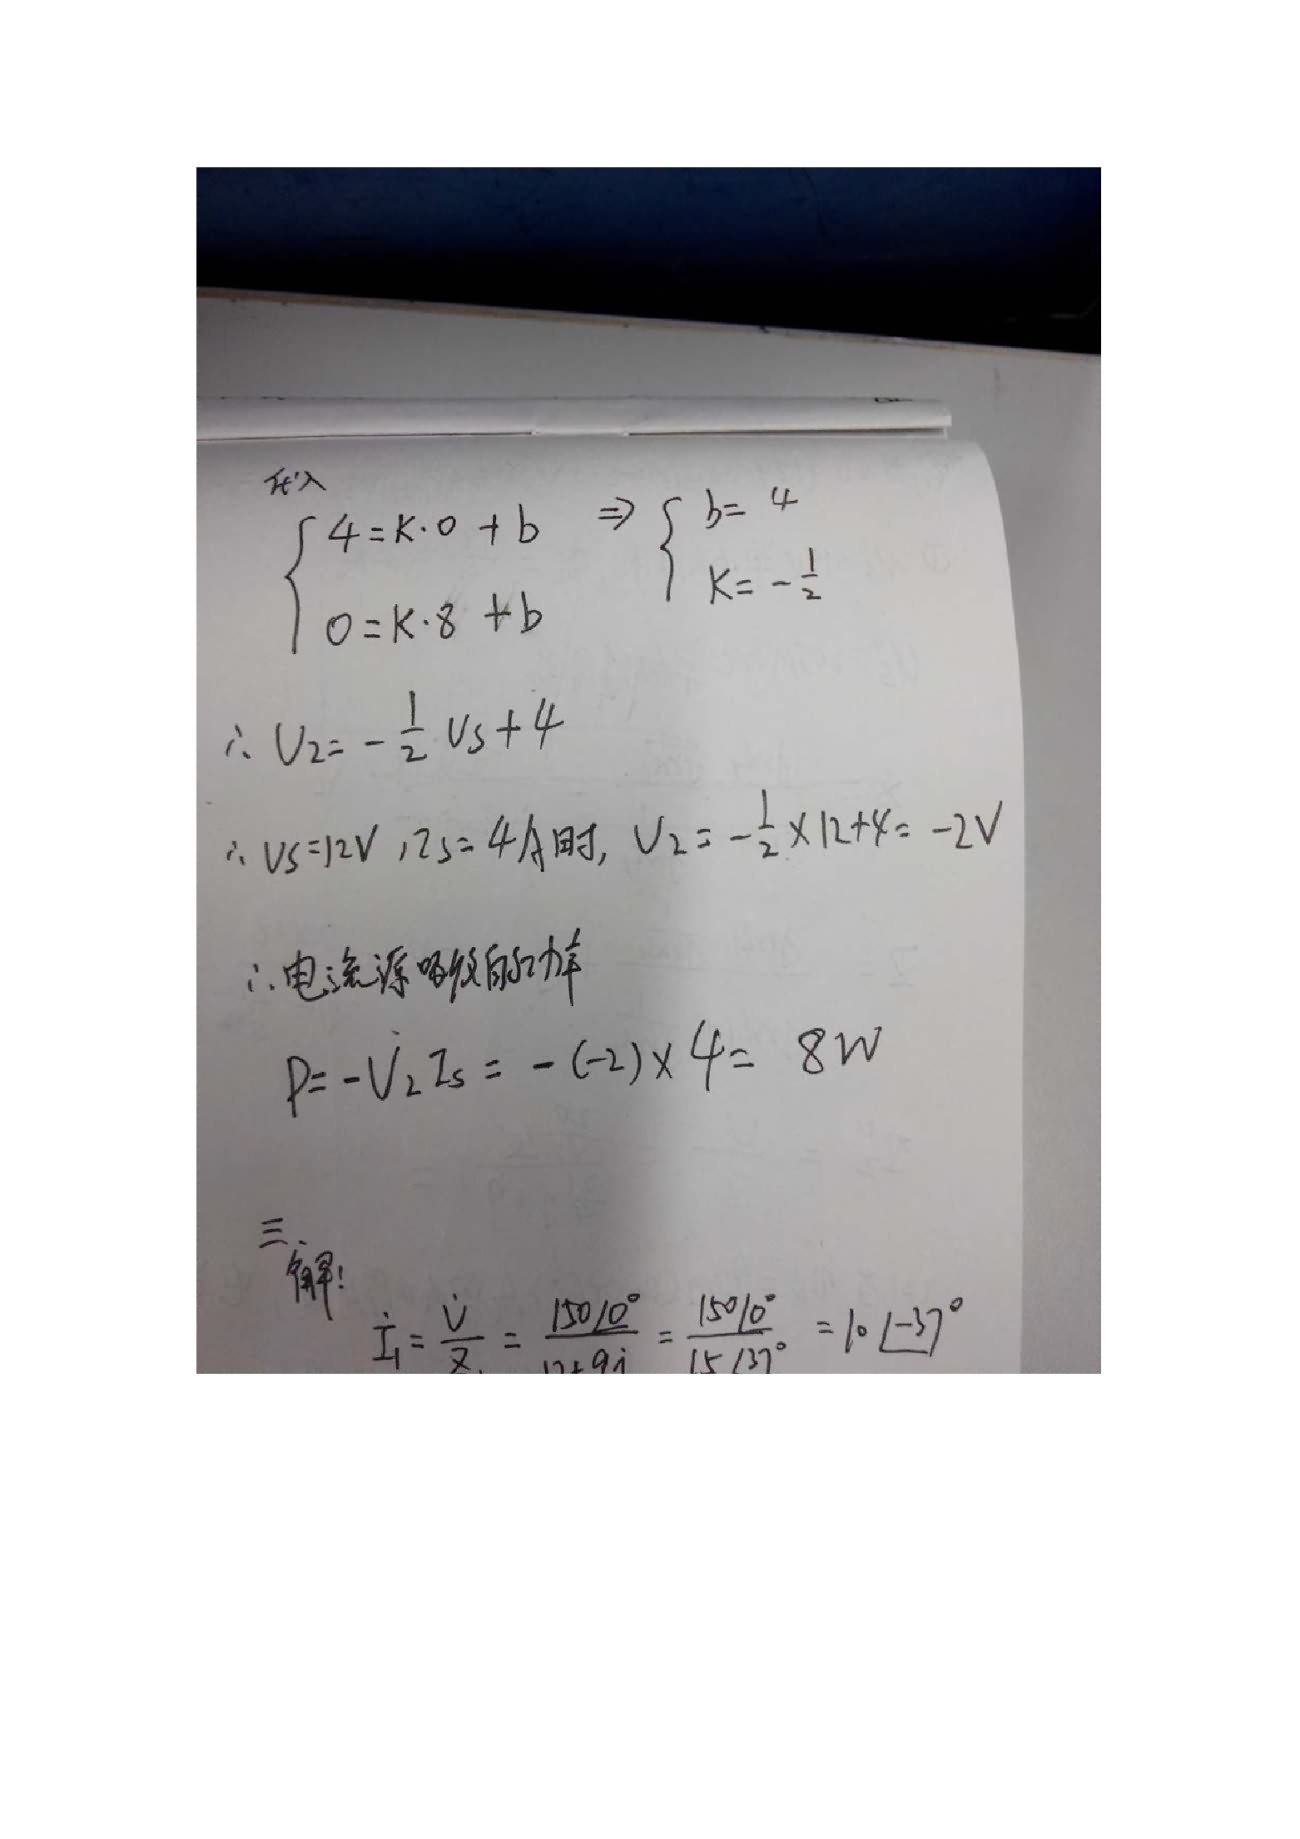 代入
{ 4=K·0+b ⇒ { b=4
0=K·8+b K=-1/2
∴ U2=-1/2 Us+4
∴ Us=12V, Is=4A时, U2=-1/2×12+4=-2V
∴电流源吸收的功率
P=-U2Is=-(-2)×4=8W
三、
解:
İ1=U̇/Z1=150∠0°/12+9j=150∠0°/15∠37°=10∠-37°